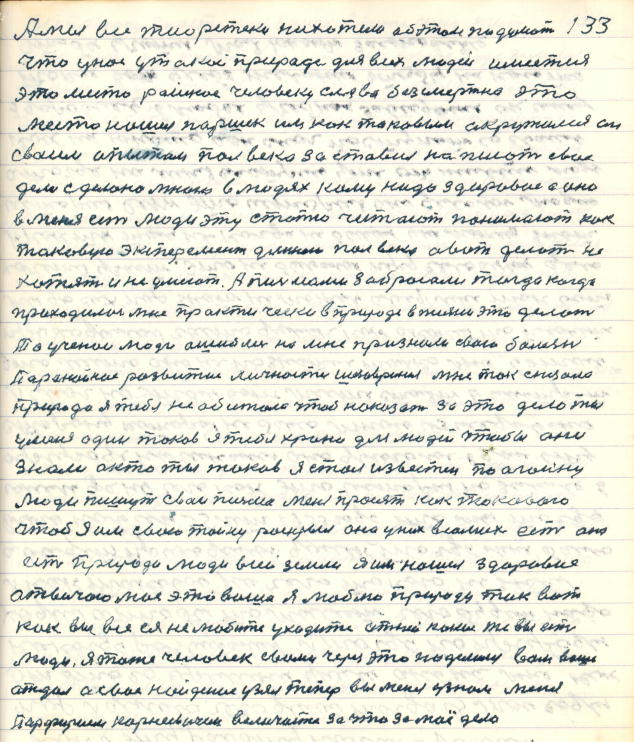 А мы все тиоретеки нихотели обэтом подумат 133
что унас у такой природе для всех людей имеется
это место райское человеку слава безсмертна это
место нашел паршек им как таковым окружился он
своим опытом пол века заставил написат свое
дело сделоно мною в людях кому надо здоровое а оно
в меня ест люди эту статю читают понимают как
таковую эксперемент длиною пол века а вот делат не
хотят и не умеют. А письмами забросали тогда когда
приходилос мне практически в природе в жизни это делат
То ученые люди ошиблис на мне признали свою болезн
Паранойное развитие личности шизофрения мне так сказала
Природа я тебя не обитала чтоб наказат за это дело ты
уменя один таков я тебя храню для людей чтобы они
знали а кто ты таков я стал известен по огоньку
люди пишут свои писма меня просят как такового
чтоб я им свою тайну раскрыл она у них в самих ест оно
ест Природа люди всей земли я им нашел здоровие
отвичаю мое это ваше я люблю природу так вот
как вы все ея не любите уходите от ней какие же вы ест
люди. Я тоже человек своим через это поделился вам ваше
отдал а свое найденое узял тепер вы меня узнали меня
Парфирием корнеевичем величаете за что за моё дело